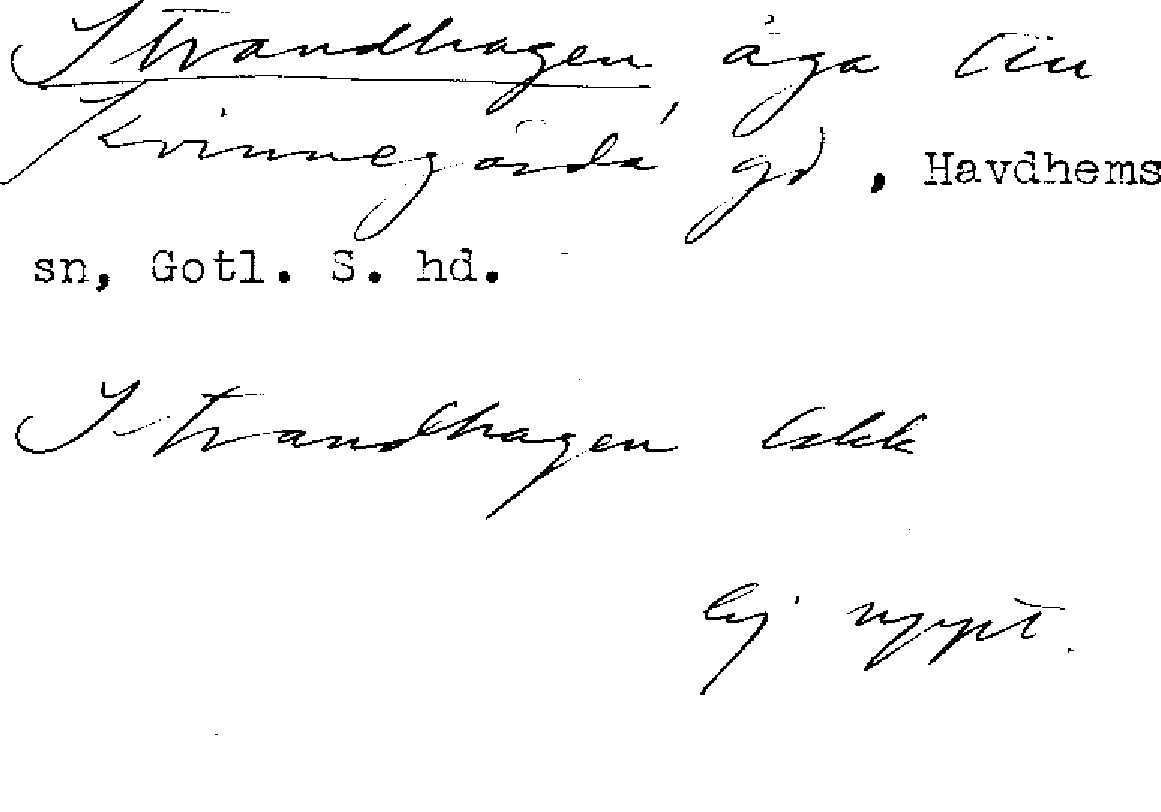 Strandhagen, äga
Kvinnegårda gd, Havdhems
sn, Gotl. S. hd.
Strandhagen
Ej uppt.